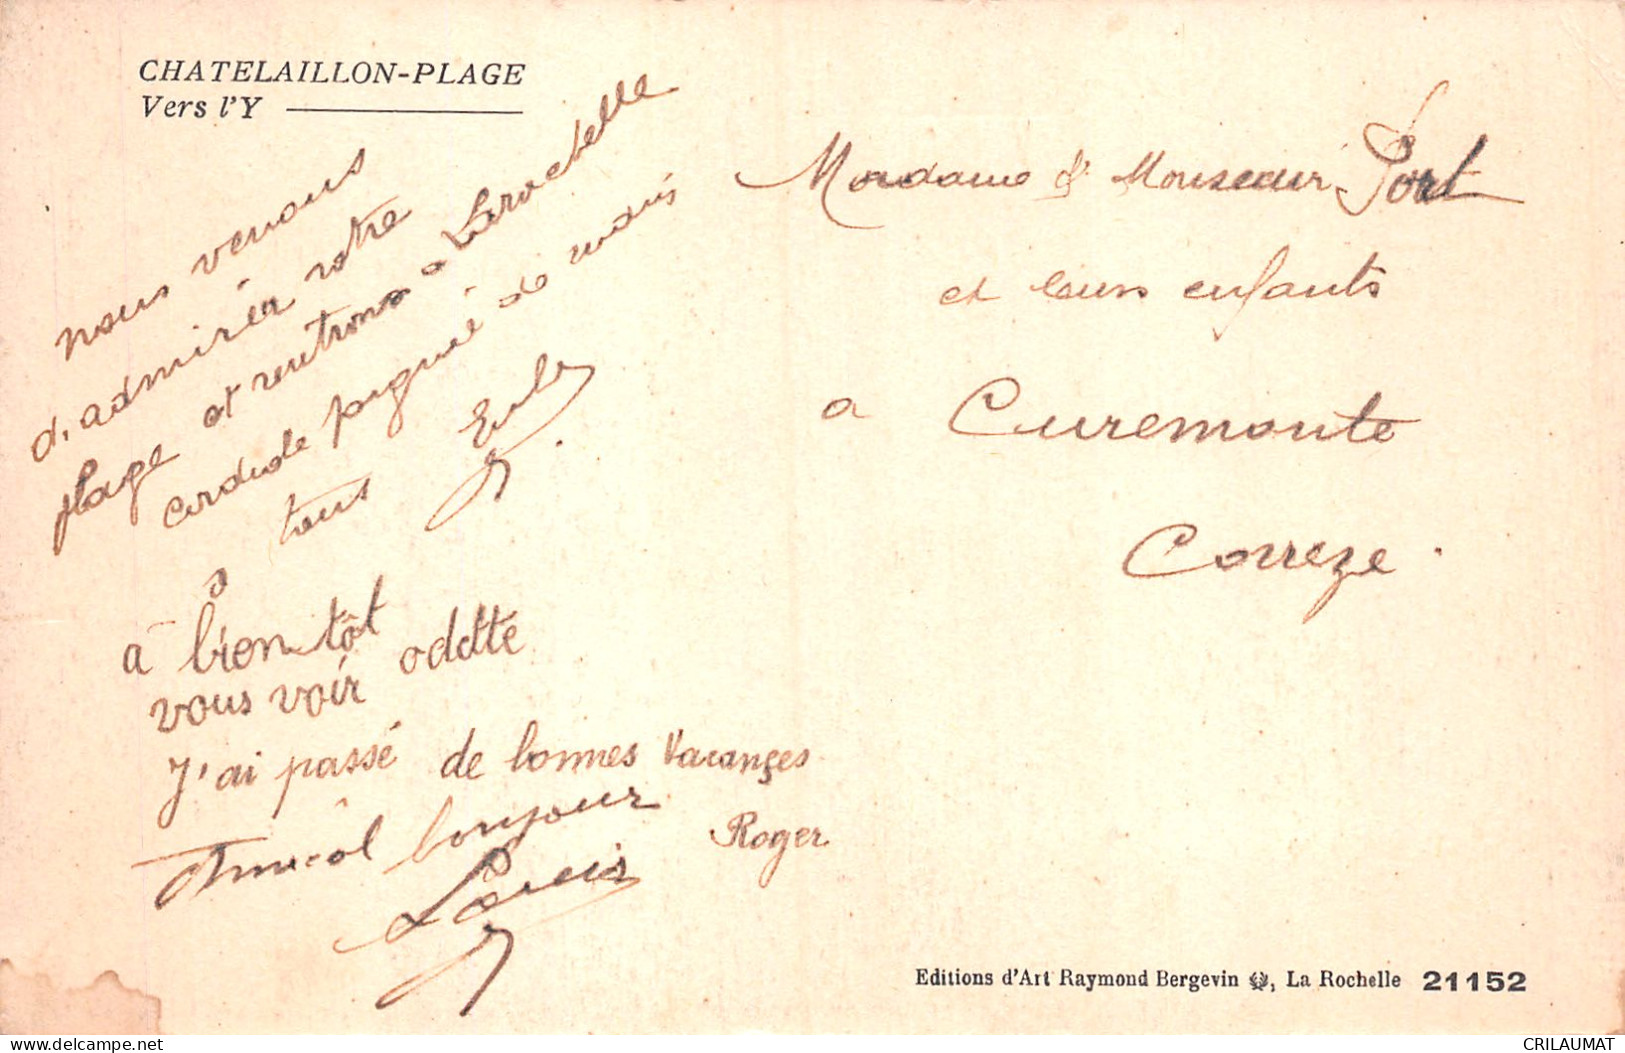 CHATELAILLON-PLAGE
Vers l'Y
nous venons
d'admirer votre
plage et rentrons a Larochelle
cordiale poignée de mains
tous
à bientôt
vous voir odette
J'ai passé de bonnes Vacanges
Roger
Amical bonjour
Louis
Madame & Monsieur Port
et leurs enfants
a Curemonte
Correze.
Editions d'Art Raymond Bergevin, La Rochelle 21152
CRILAUMAT